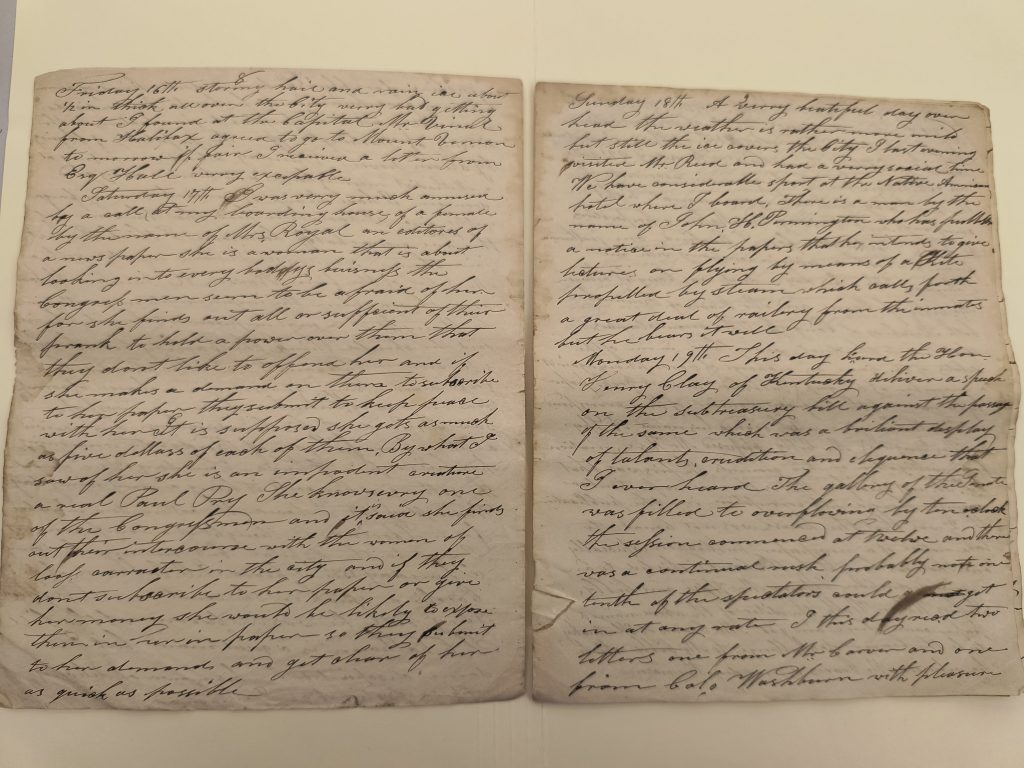 8
Friday 16th stormy hail and rain ice about
½ in thick all over the City very bad getting
about I found at the Capital Mr
from Halifax agreed to go to Mount Vernon
to morrow if fair I received a letter from
Esq Hale very exceptable
Saturday 17th I was very much amused
by a call at my boarding house of a female
by the name of Mrs Royal an editores of
a news paper she is a woman that is about
looking in to every bodys buisness the
Congress men seem to be afraid of her
for she finds out all or sufficent of their
prank to hold a power over them that
they dont like to offend her and if
she makes a demand on them to subscribe
to her paper they submit to keep peace
with her It is supposed she gets as much
as five dollars of each of them, By what I
saw of her she is an impudent creature
a real Paul Pry She knows evry one
of the Congressmen and it is said she finds
out their intercourse with the women of
loos carracter in the city and if they
dont subscribe to her paper or give
her money she would be likely to expose
them in her paper so they submit
to her demands and get clear of her
as quick as possible
Sunday 18th A very beatiful day over
head the weather is rather more mild
but still the ice covers the City I last evening
visited Mr Reed and had a very social time
We have considerable sport at the Native American
hotel where I board, There is a man by the
name of John, H, Pennington who has published
a notice in the papers that he intends to give
lectures on flying by means of a Kite
propelled by steam which calls forth
a great deal of railery from the inmates
but he bears it well
Monday 19th This day heard the Hon
Henry Clay of Kentucky deliver a speech
on the subtreasury bill against the passage
of the same which was a briliant display
of talants, erudition and eloquence that
I ever heard The gallery of the Senate
was filled to overflowing by ten oclock
the session commenced at twelve and there
was a continual rush probably not one
tenth of the spectators could get
in at any rate I this day read two
letters one from Mr Carver and one
from Colo Washburn with pleasure